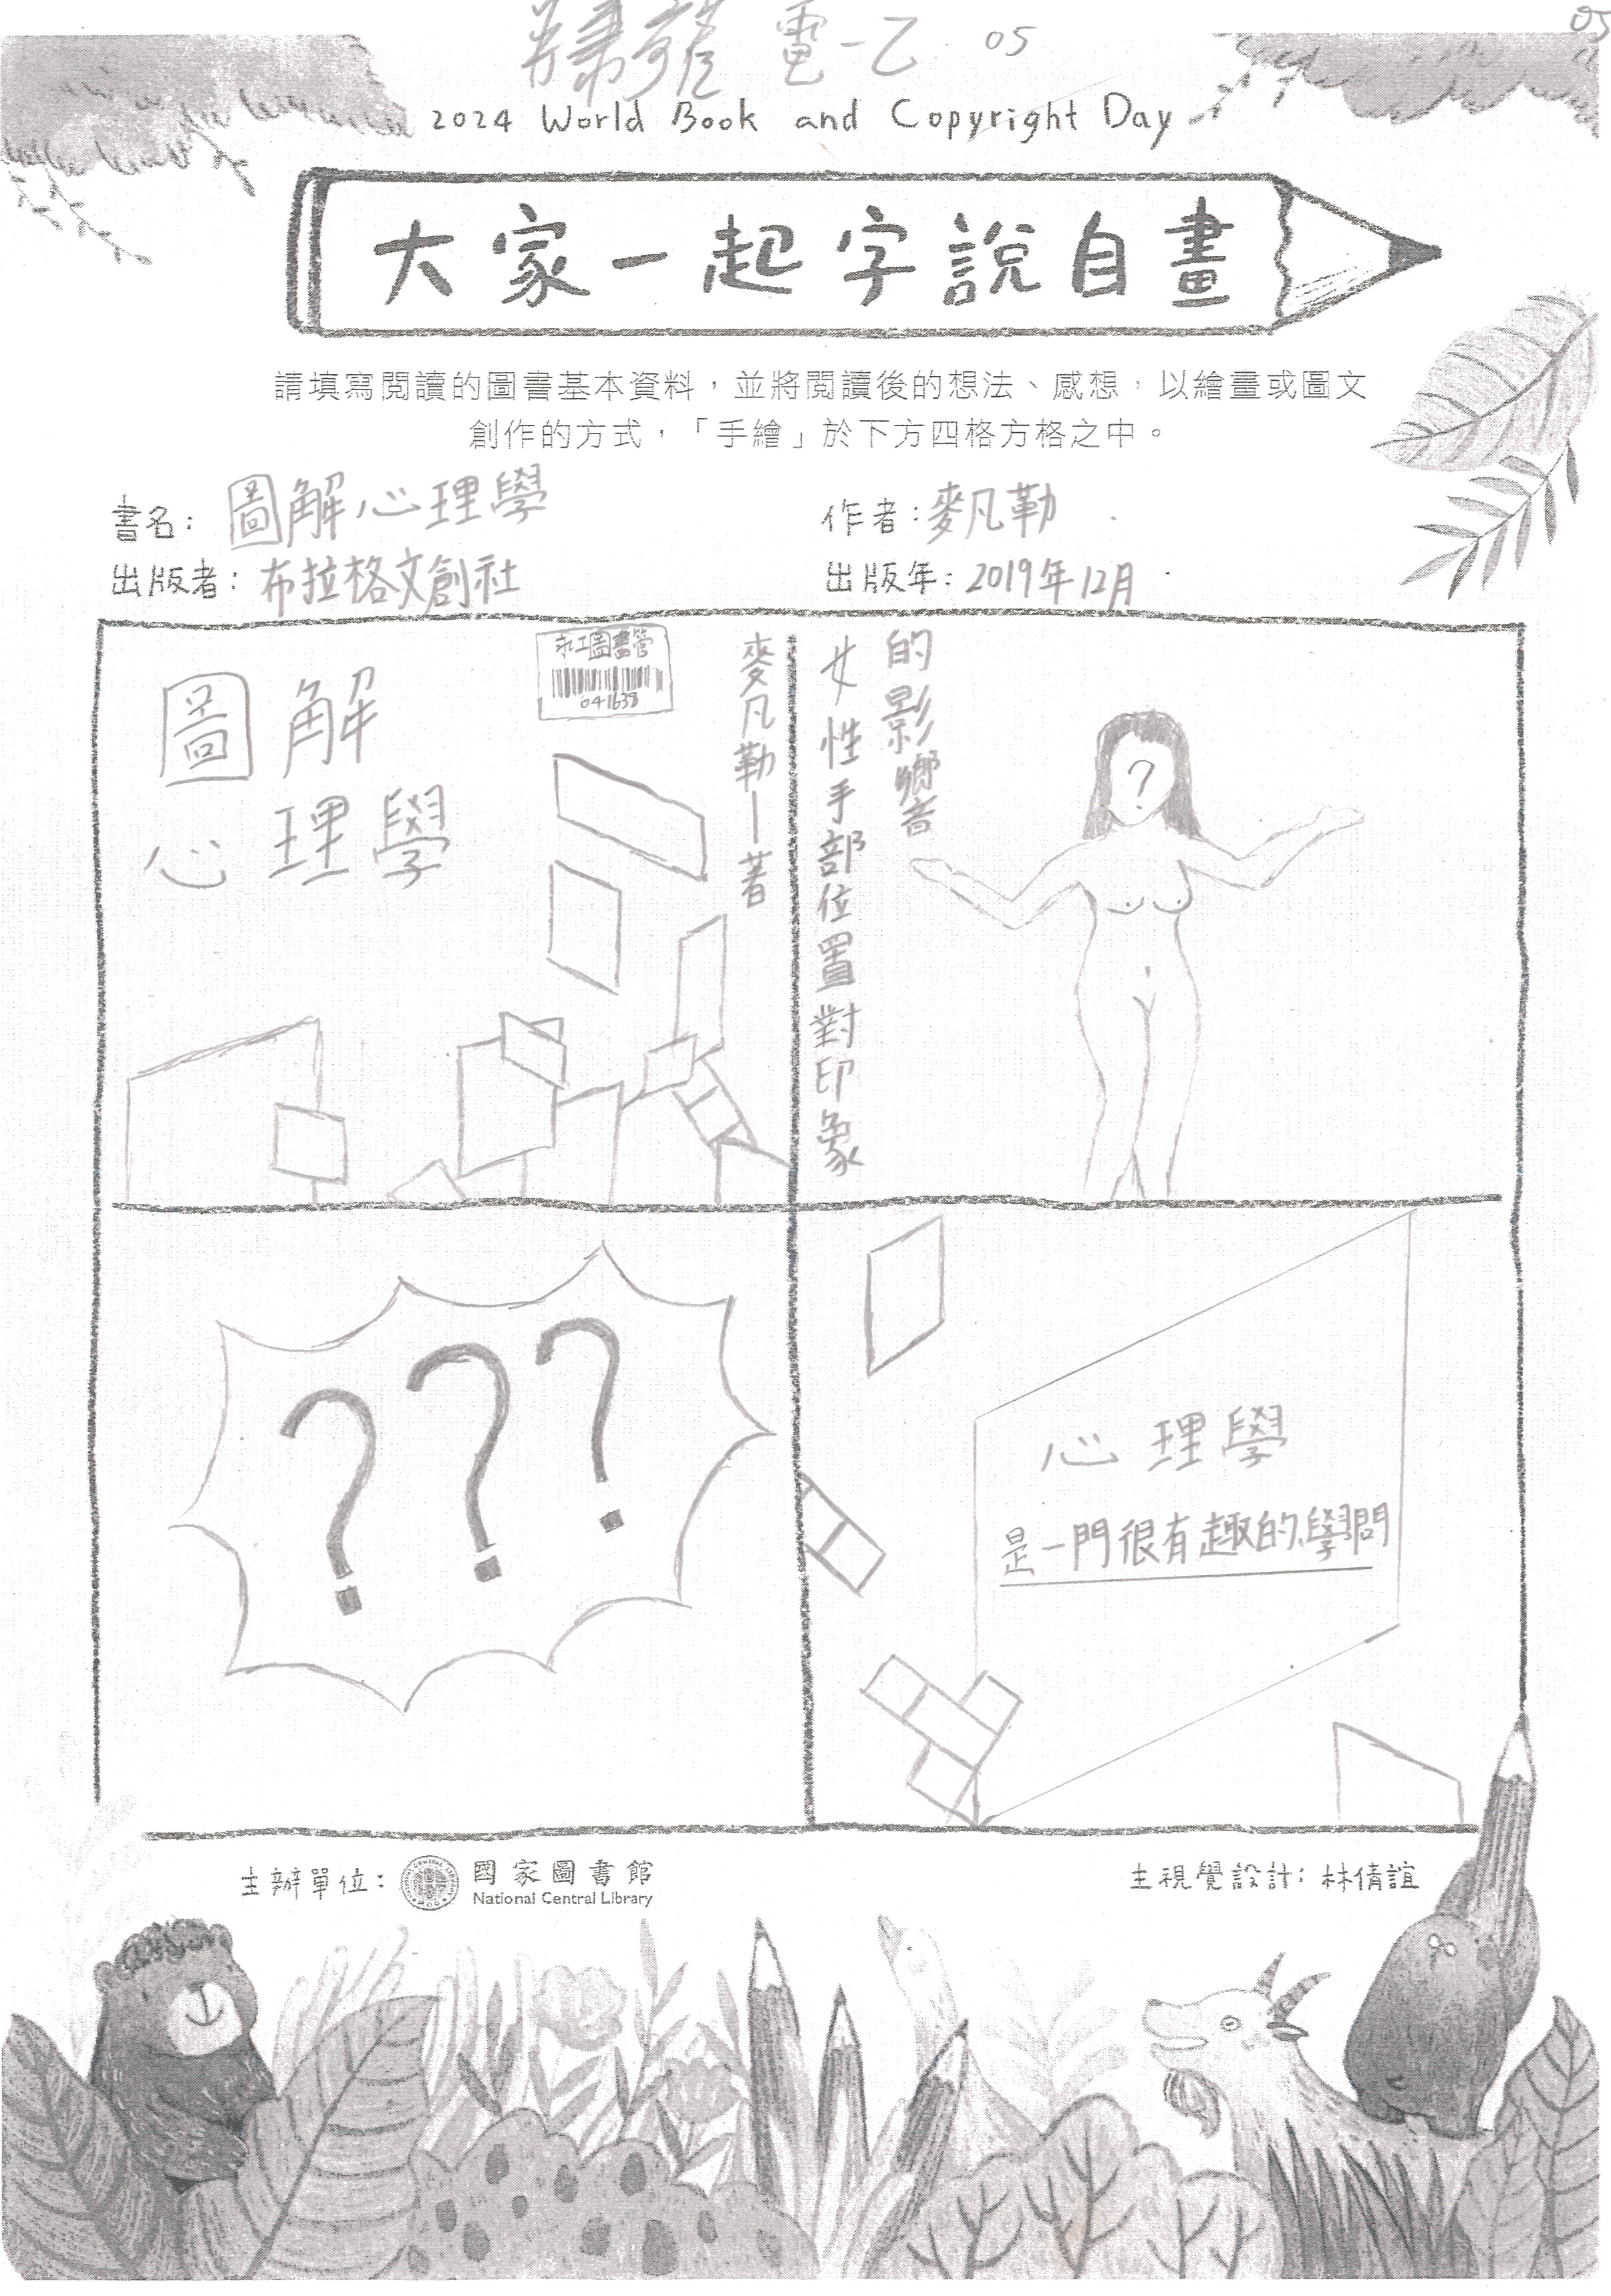 電一乙 05
05
2024 World Book and Copyright Day
大家一起字說自畫
請填寫閱讀的圖書基本資料，並將閱讀後的想法、感想，以繪畫或圖文
創作的方式，「手繪」於下方四格方格之中。
書名：圖解心理學
作者：麥凡勒
出版者：布拉格文創社
出版年：2019年12月
圖解
心理學
圖書管
041638
麥凡勒｜著
女性手部位置對印象
的影響
?
???
心理學
是一門很有趣的學問
主辦單位：國家圖書館
National Central Library
主視覺設計：林倩誼